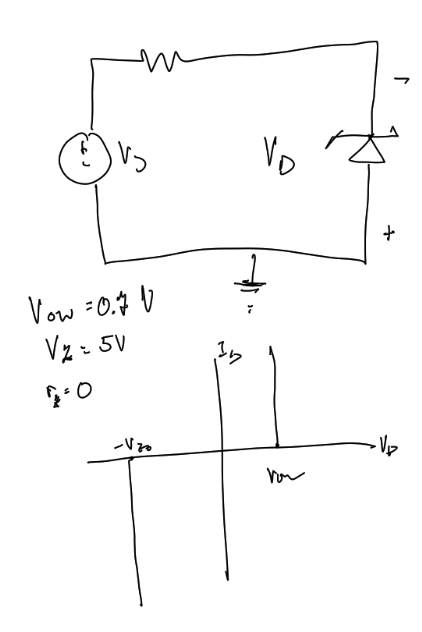 +
-
V_S
V_D
-
+
V_ON = 0.7 V
V_Z = 5V
r_z = 0
I_D
-V_Z0
V_D
V_ON